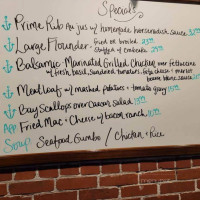 Specials
Prime Rib Au jus w/ homemade horseradish sauce
Large Flounder Fried or broiled
stuffed w/ crabcake
Balsamic Marinated Grilled Chicken over fettuccine
w/ fresh basil, sundried tomatoes, feta cheese +
Meatloaf w/ mashed potatoes + tomato gravy
Bay Scallops over Caesar salad
App Fried Mac + Cheese w/ bacon ranch
Soup: Seafood Gumbo / Chicken + Rice